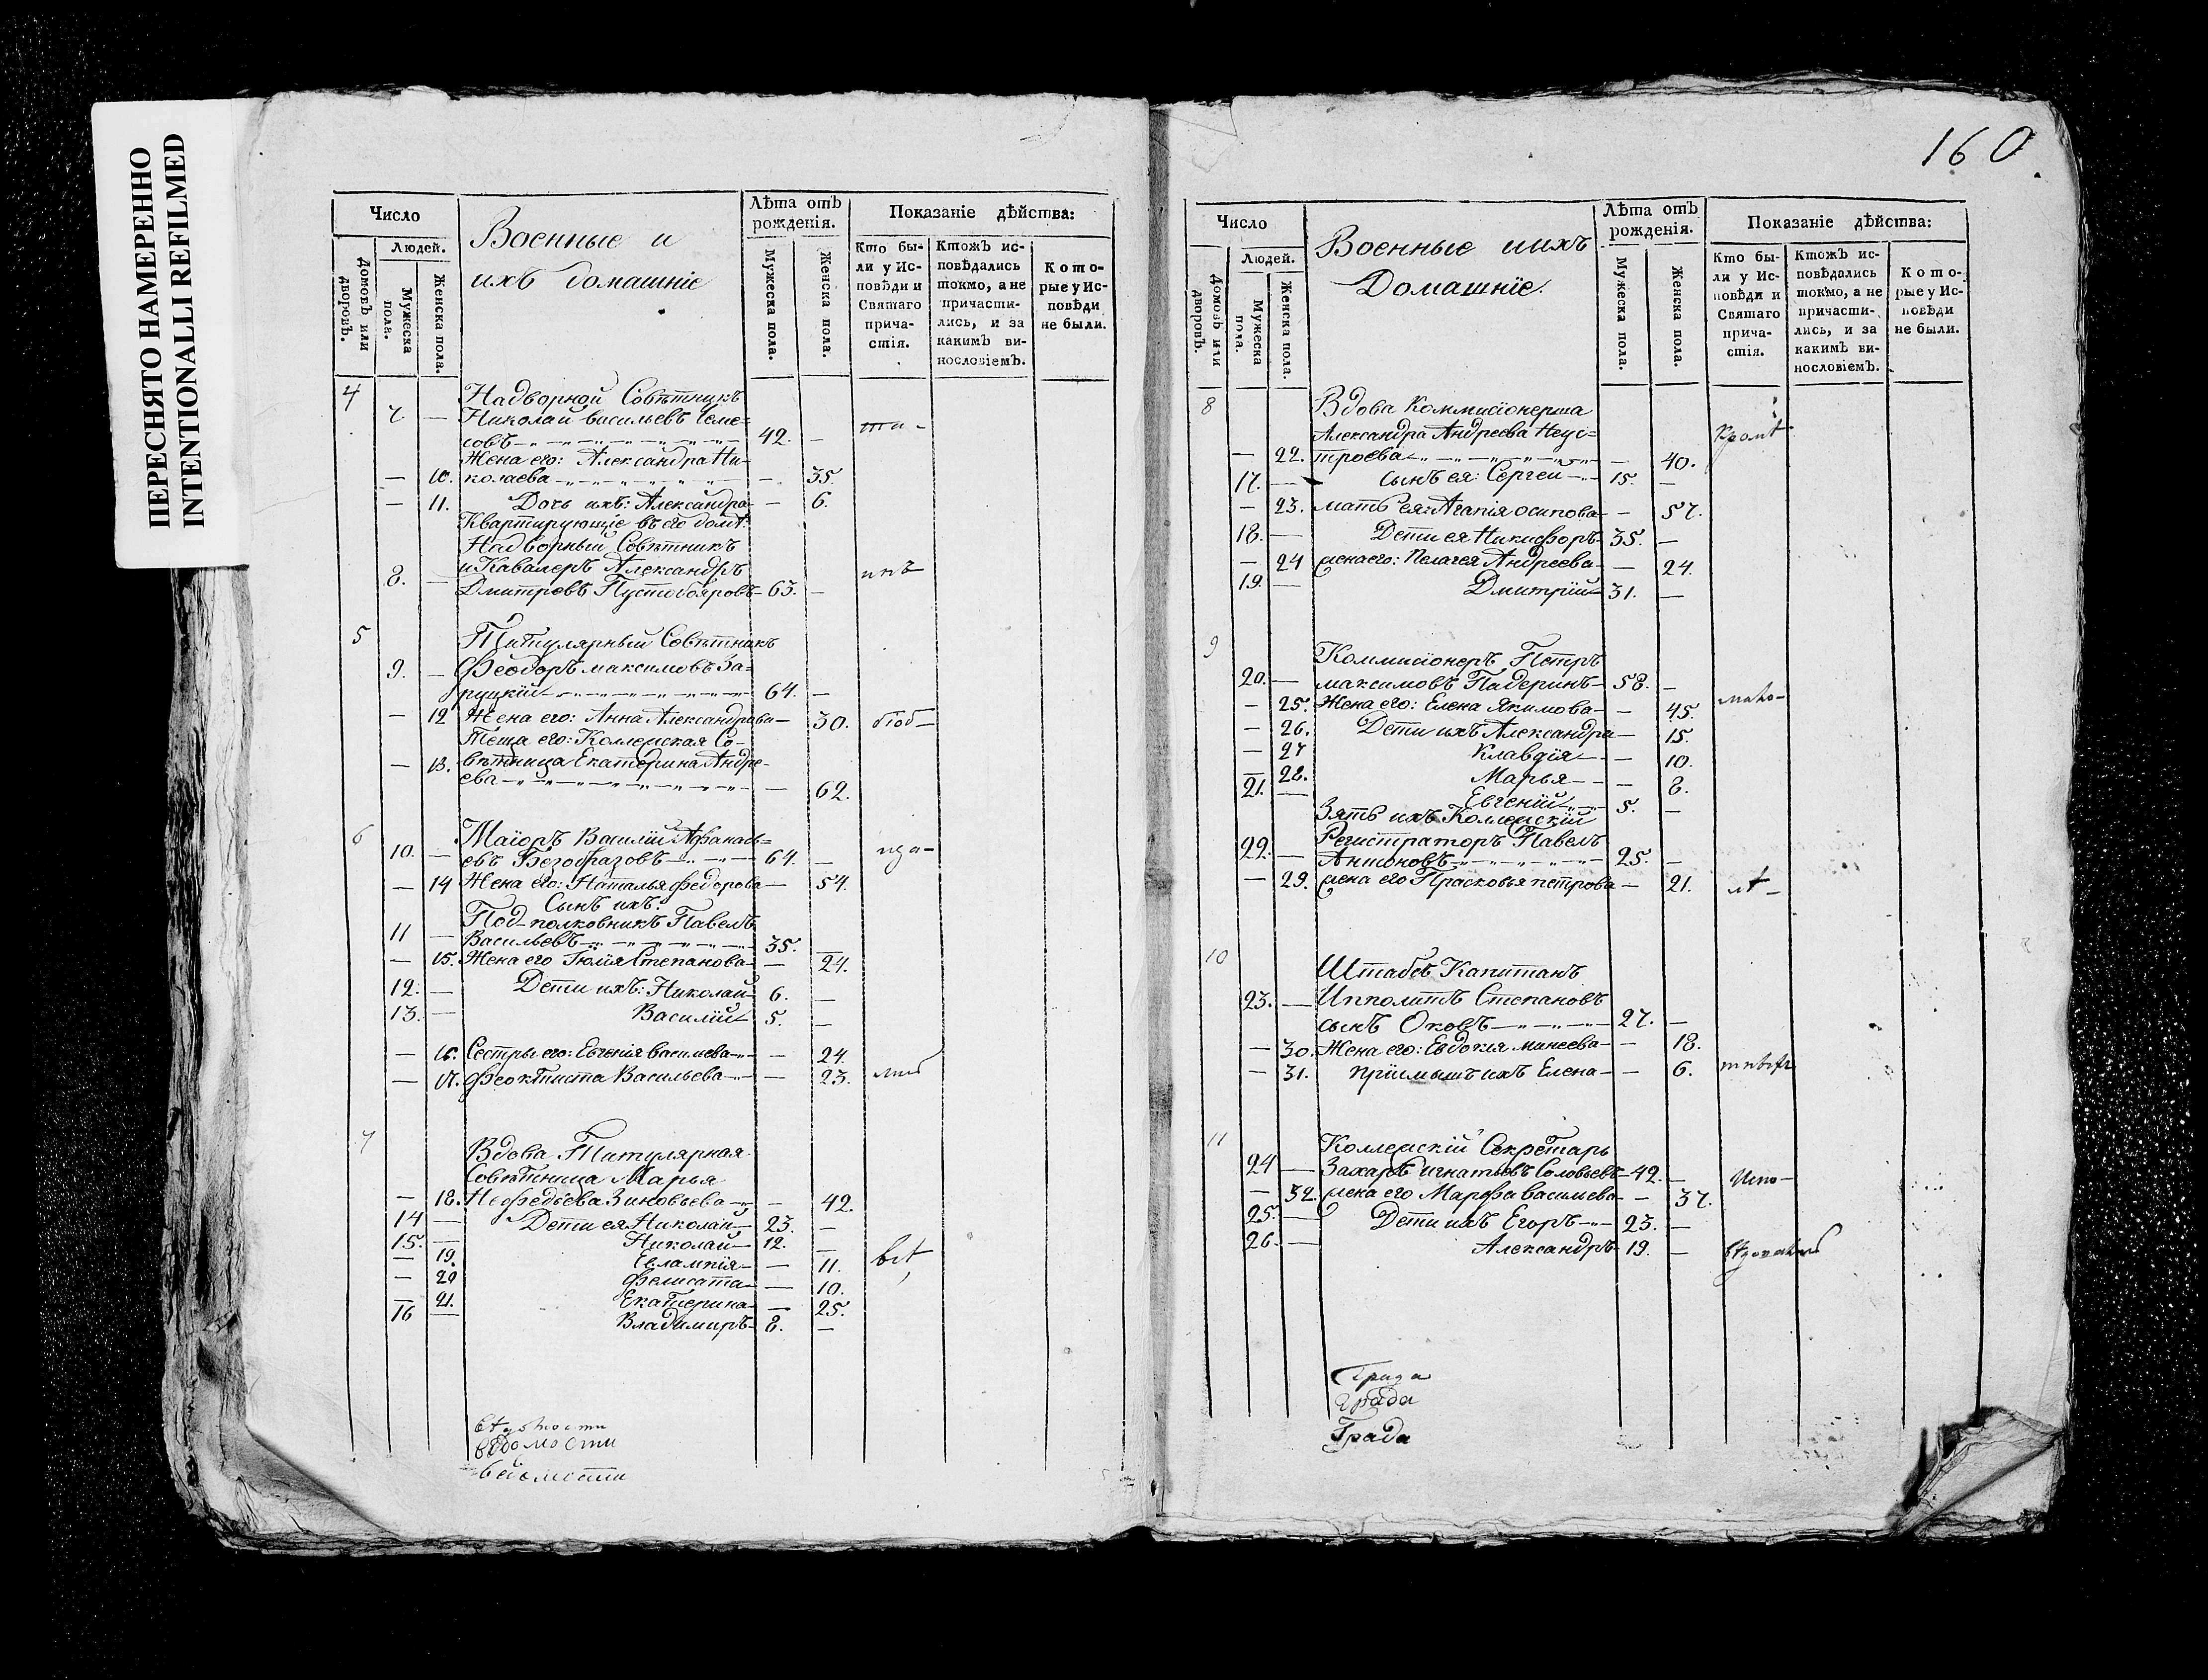 ПЕРЕСНЯТО НАМЕРЕННО
INTENTIONALLI REFILMED
Число
Людей.
Домовъ или дворовъ.
Мужеска пола.
Женска пола.
Военные и
ихъ домашніе
Лѣта отъ рожденія.
Мужеска пола.
Женска пола.
Показаніе дѣйства:
Кто были у Исповѣди и Святаго причастія.
Ктожъ исповѣдались токмо, а не причастились, и за какимъ винословіемъ.
Которые у Исповѣди не были.
4
Надворной Совѣтникъ
7. — Николай васильевъ Семе=
совъ 42. —
Жена его: Александра Ни-
— 10. колаева — 35.
— 11. Дочь ихъ: Александра — 6.
Квартирующіе въ его домѣ:
Надворный Совѣтникъ
и Кавалеръ Александръ
8. — Дмитровъ Пустобояровъ 63. —
5 Титулярный Совѣтникъ
9. — Феодоръ максимовъ За=
руцкій 64. —
— 12 Жена его: Анна Александрова — 30.
Теща его: Коллежская Со-
— 13. вѣтница Екатерина Андре-
ева — 62.
6 Маіоръ Василій Афанась=
10. — евъ Безобразовъ 64. —
— 14 Жена его: Наталья федорова — 54.
Сынъ ихъ:
Под-полковникъ Павелъ
11 — Васильевъ 35. —
— 15. Жена его Іюлія Степанова — 24.
12. — Дети ихъ: Николай 6. —
13. — Василій 5. —
— 16. Сестры его: Евгенія васильева — 24.
— 17. феоктиста Васильева — 23.
7
Вдова Титулярная
Совѣтница Марья
— 18. Нефедьева Зиновьева — 42.
14 — Дети ея Николай 23. —
15. — Николай 12. —
— 19. Евлампія — 11.
— 20 Фелисата — 10.
— 21. Екатерина — 25.
16 — Владимиръ 8. —
ведомости
160
Число
Людей.
Домовъ или дворовъ.
Мужеска пола.
Женска пола.
Военные и ихъ
Домашніе.
Лѣта отъ рожденія.
Мужеска пола.
Женска пола.
Показаніе дѣйства:
Кто были у Исповѣди и Святаго причастія.
Ктожъ исповѣдались токмо, а не причастились, и за какимъ винословіемъ.
Которые у Исповѣди не были.
8 Вдова Коммисіонерша
Александра Андреева Неус=
— 22. троева — 40.
17. — сынъ ея: Сергей 15. —
— 23. мать ея: Агапія осипова — 57.
18. — Дети ея Никифоръ 35. —
— 24 жена его: Пелагея Андреева — 24.
19. — Дмитрій 31. —
9
Коммисіонеръ Петръ
20. — максимовъ Падеринъ 58. —
— 25. Жена его: Елена Якимова — 45.
— 26. Дети ихъ Александра — 15.
— 27 Клавдія — 10.
— 28. Марья — 8.
21. — Евгеній 5. —
Зять ихъ Коллежскій
Регистраторъ Павелъ
22. — 25. —
— 29. жена его Прасковья петрова — 21.
10
Штабсъ Капитанъ
23. — Ипполитъ Степановъ
сынъ Оковъ 27. —
— 30. Жена его: Евдокія минеева — 18.
— 31. пріимышъ ихъ Елена — 6.
11 Коллежскій Секретарь
24 — Захаръ игнатьевъ Соловьевъ 42. —
— 32. жена его Марфа васильева — 37.
25. — Дети ихъ Егоръ 23. —
26. — Александръ 19. —
Града
града
Града